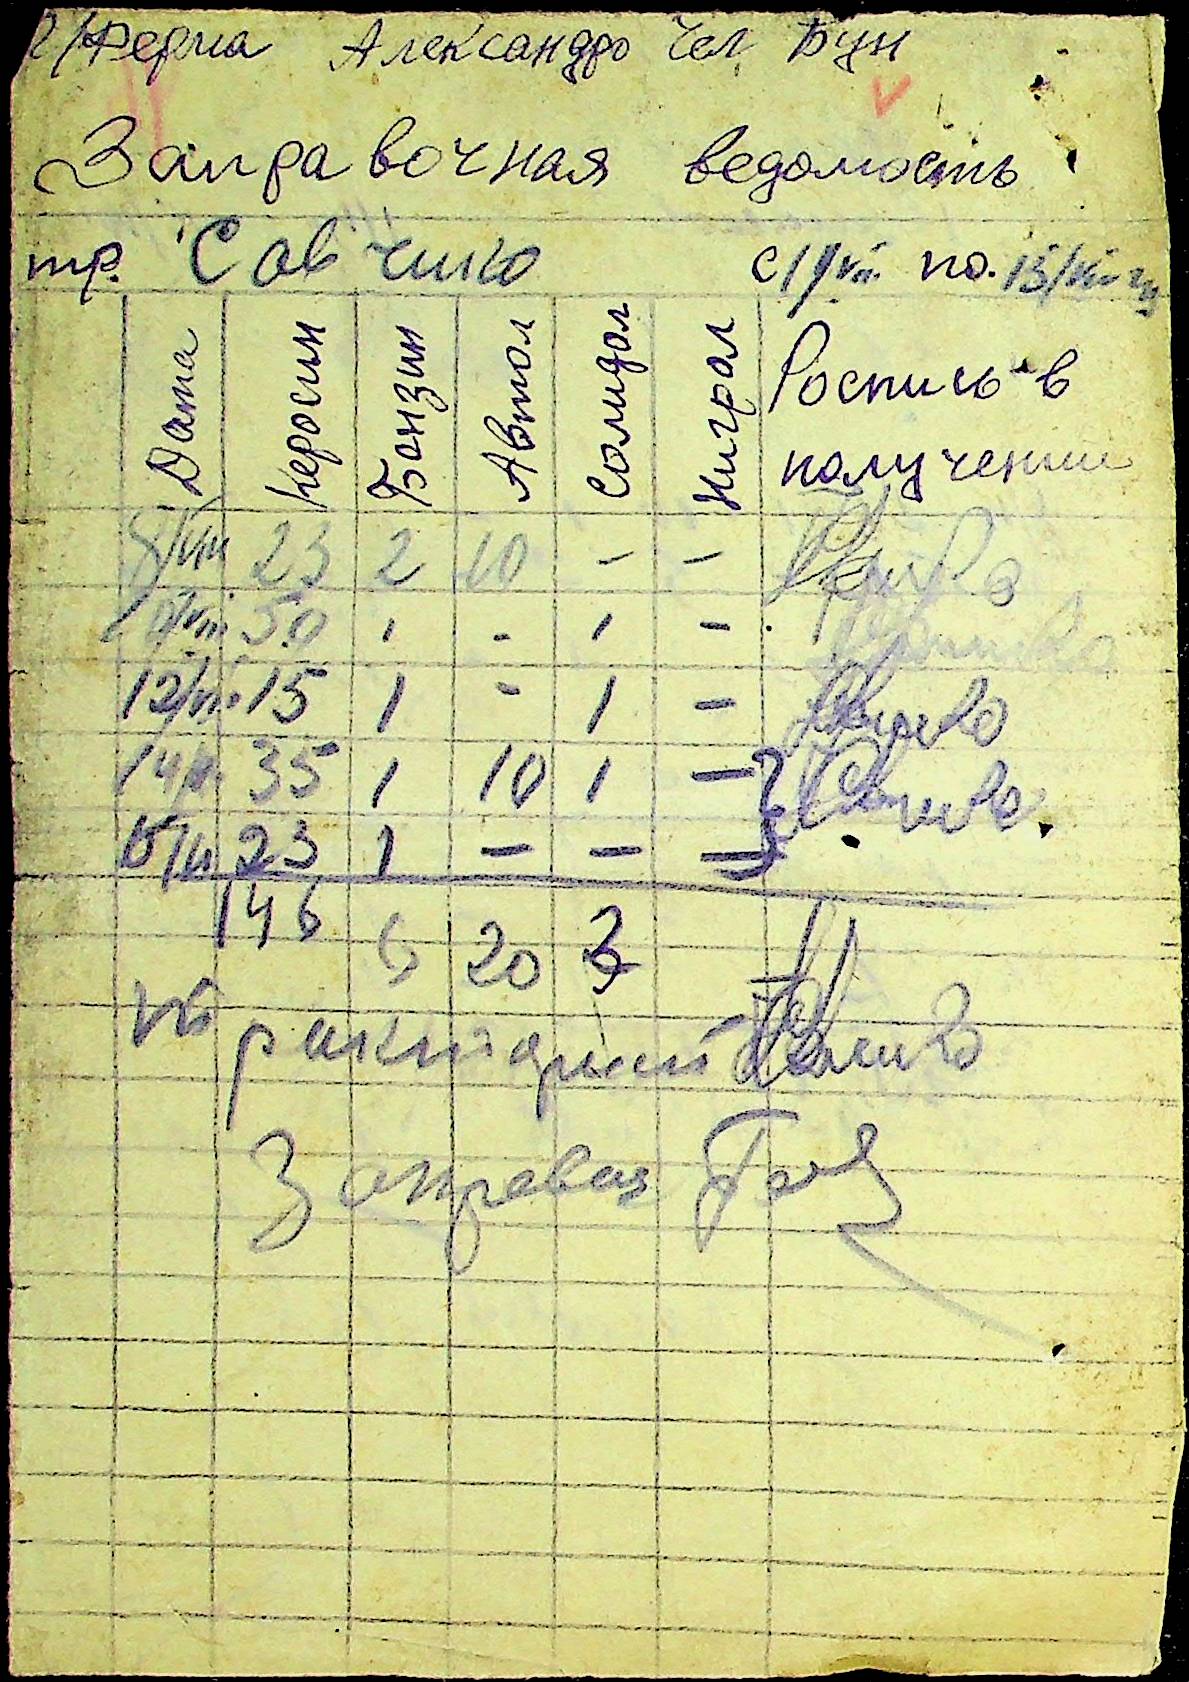 Ферма Александро Чел Бун
Заправочная ведомость
тр. Савчико с 1/VIII по. 15/VIII
Дата Керосин Бензин Автол Солидол Нигрол Роспись в получении
8/VIII 23 2 10 - -
50 1 - 1 -
12/VIII 15 1 - 1 -
14/ 35 1 10 1 -
15/ 23 1 - - -
146 6 20 3
Тракторный
Заправщ